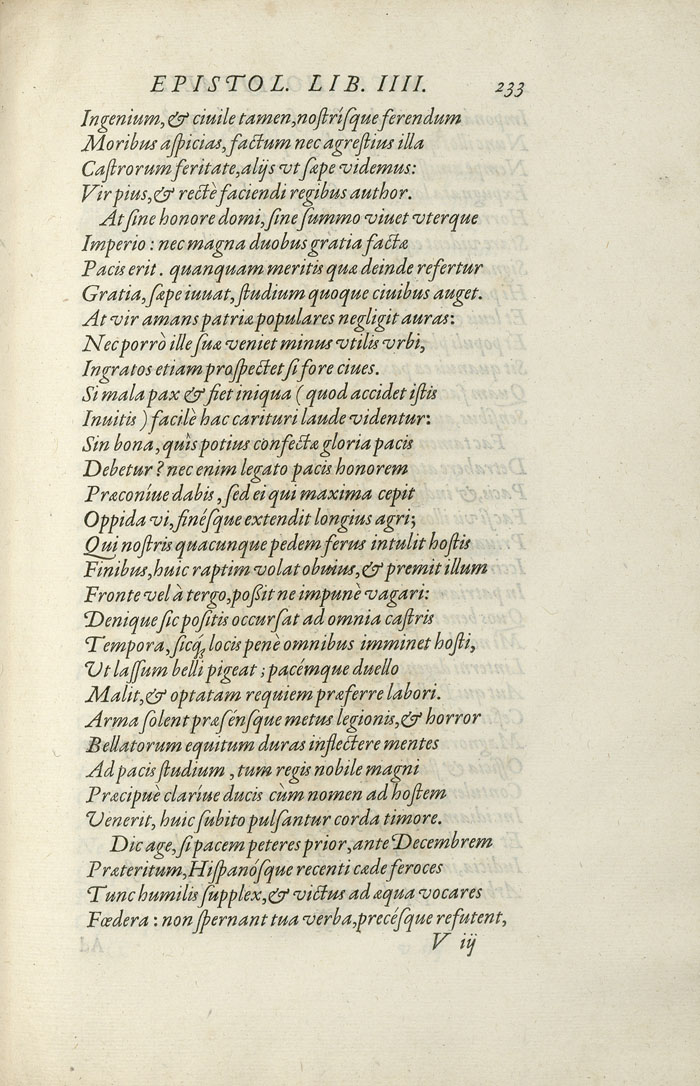 EPISTOL. LIB. IIII. 233
Ingenium, & ciuile tamen, noſtríſque ferendum
Moribus aſpicias, factum nec agreſtius illa
Caſtrorum feritate, alijs vt ſæpe videmus:
Vir pius, & rectè faciendi regibus author.
At ſine honore domi, ſine ſummo viuet vterque
Imperio: nec magna duobus gratia factæ
Pacis erit. quanquam meritis quæ deinde refertur
Gratia, ſæpe iuuat, ſtudium quoque ciuibus auget.
At vir amans patriæ populares negligit auras:
Nec porrò ille ſuæ veniet minus vtilis vrbi,
Ingratos etiam proſpectet ſi fore ciues.
Si mala pax & fiet iniqua (quod accidet iſtis
Inuitis) facilè hac carituri laude videntur:
Sin bona, quîs potius confectæ gloria pacis
Debetur? nec enim legato pacis honorem
Præconíue dabis, ſed ei qui maxima cepit
Oppida vi, finéſque extendit longius agri;
Qui noſtris quacunque pedem ferus intulit hoſtis
Finibus, huic raptim volat obuius, & premit illum
Fronte vel à tergo, poßit ne impunè vagari:
Denique ſic poſitis occurſat ad omnia caſtris
Tempora, ſicq́; locis penè omnibus imminet hoſti,
Vt laſſum belli pigeat; pacémque duello
Malit, & optatam requiem præferre labori.
Arma ſolent præſénſque metus legionis, & horror
Bellatorum equitum duras inflectere mentes
Ad pacis ſtudium, tum regis nobile magni
Præcipuè claríue ducis cùm nomen ad hoſtem
Venerit, huic ſubito pulſantur corda timore.
Dic age, ſi pacem peteres prior, ante Decembrem
Præteritum, Hiſpanóſque recenti cæde feroces
Tunc humilis ſupplex, & victus ad æqua vocares
Fœdera: non ſpernant tua verba, precéſque refutent,
V iij